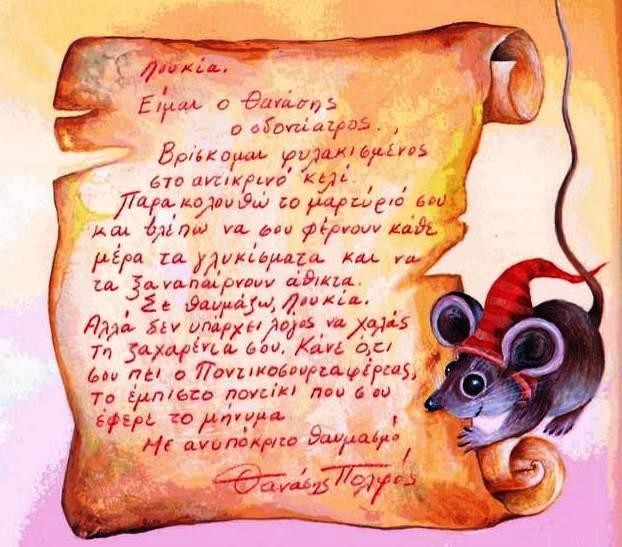 Λουκία.
Είμαι ο Θανάσης
ο οδοντίατρος..,
Βρίσκομαι φυλακισμένος
στο αντικρινό κελί.
Παρακολουθώ το μαρτύριό σου
και βλέπω να σου φέρνουν κάθε
μέρα τα γλυκίσματα και να
τα ξαναπαίρνουν άθικτα.
Σε θαυμάζω, Λουκία.
Αλλά δεν υπάρχει λόγος να χαλάς
τη ζαχαρένια σου. Κάνε ό,τι
σου πει ο Ποντικοσουρταφέρτας,
το έμπιστο ποντίκι που σου
έφερε το μήνυμα
Με ανυπόκριτο θαυμασμό
Θανάσης